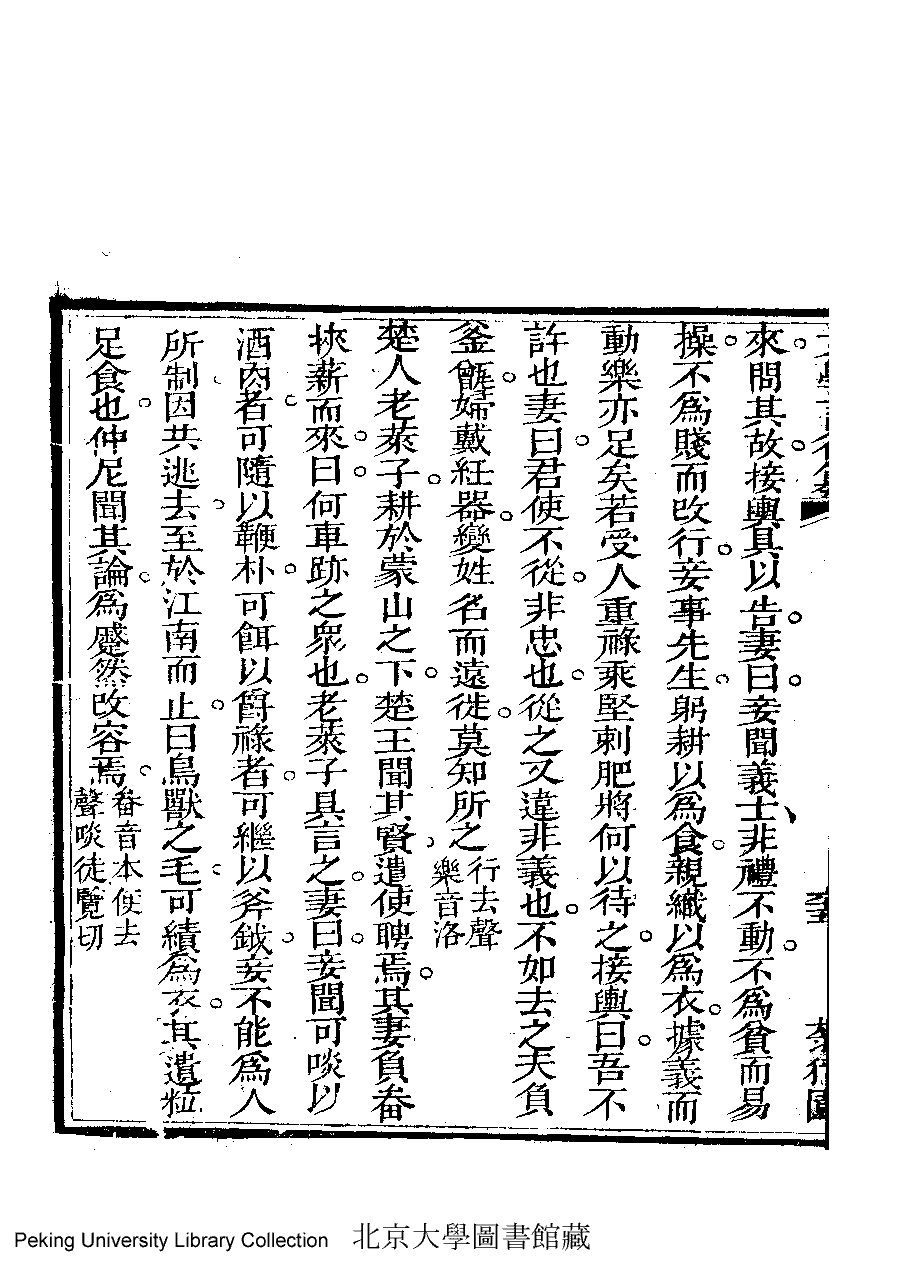 來問其故接輿具以告妻曰妾聞義士非禮不動不爲貧而易
操不爲賤而改行妾事先生躬耕以爲食親織以爲衣據義而
動樂亦足矣若受人重祿乘堅刺肥將何以待之接輿曰吾不
許也妻曰君使不從非忠也從之又違非義也不如去之夫負
釜甑婦戴紝器變姓名而遠徙莫知所之
行去聲
樂音洛
楚人老萊子耕於蒙山之下楚王聞其賢遣使聘焉其妻負畚
挾薪而來曰何車跡之衆也老萊子具言之妻曰妾聞可啖以
酒肉者可隨以鞭朴可餌以爵祿者可繼以斧鉞妾不能爲人
所制因共逃去至於江南而止曰鳥獸之毛可績爲衣其遺粒
足食也仲尼聞其論爲蹙然改容焉
畚音本使去
聲啖徒覽切
Peking University Library Collection 北京大學圖書館藏